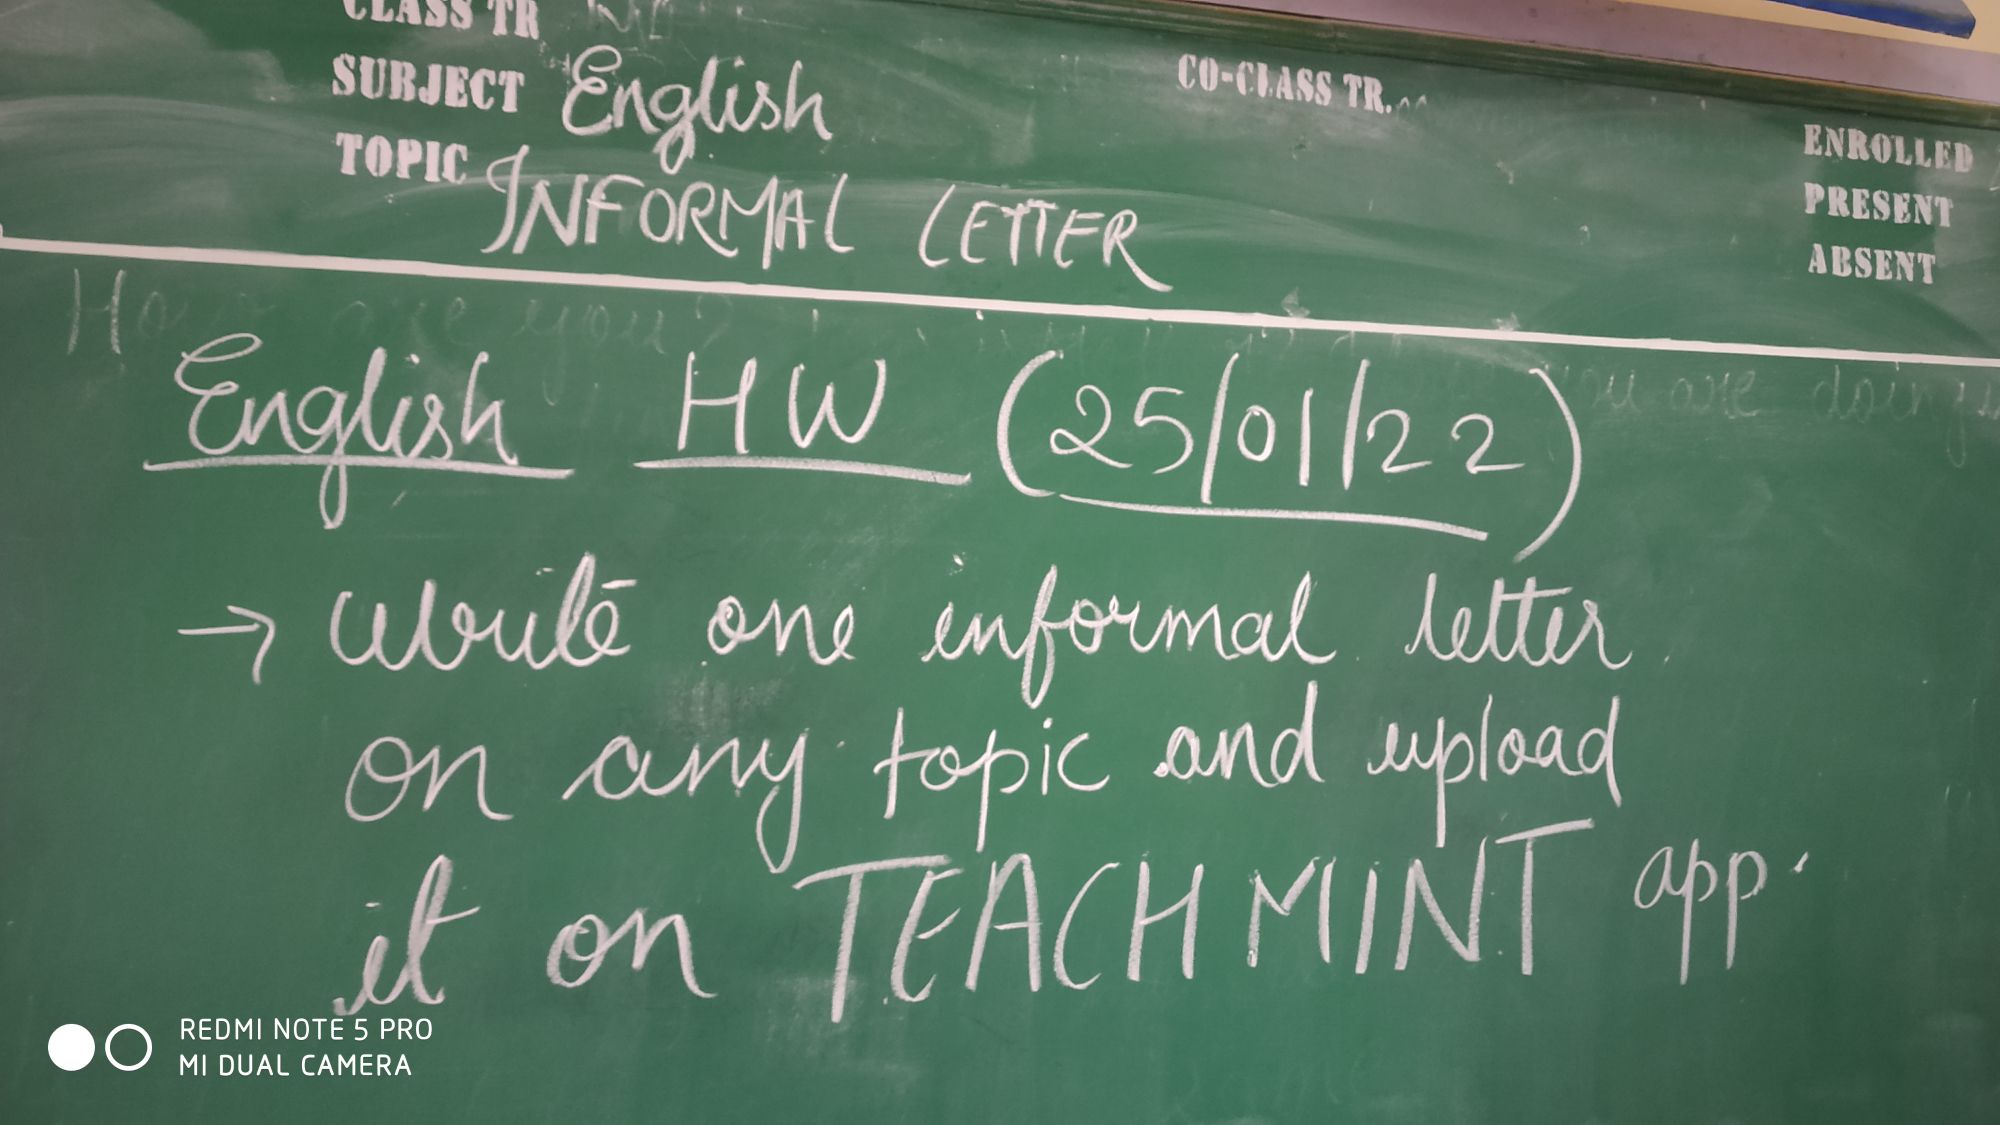 CLASS TR
SUBJECT English
CO-CLASS TR.
TOPIC INFORMAL LETTER
ENROLLED
PRESENT
ABSENT
How are you?
you are doing
English HW (25/01/22)
→ Write one informal letter
on any topic and upload
it on TEACHMINT app.
REDMI NOTE 5 PRO
MI DUAL CAMERA